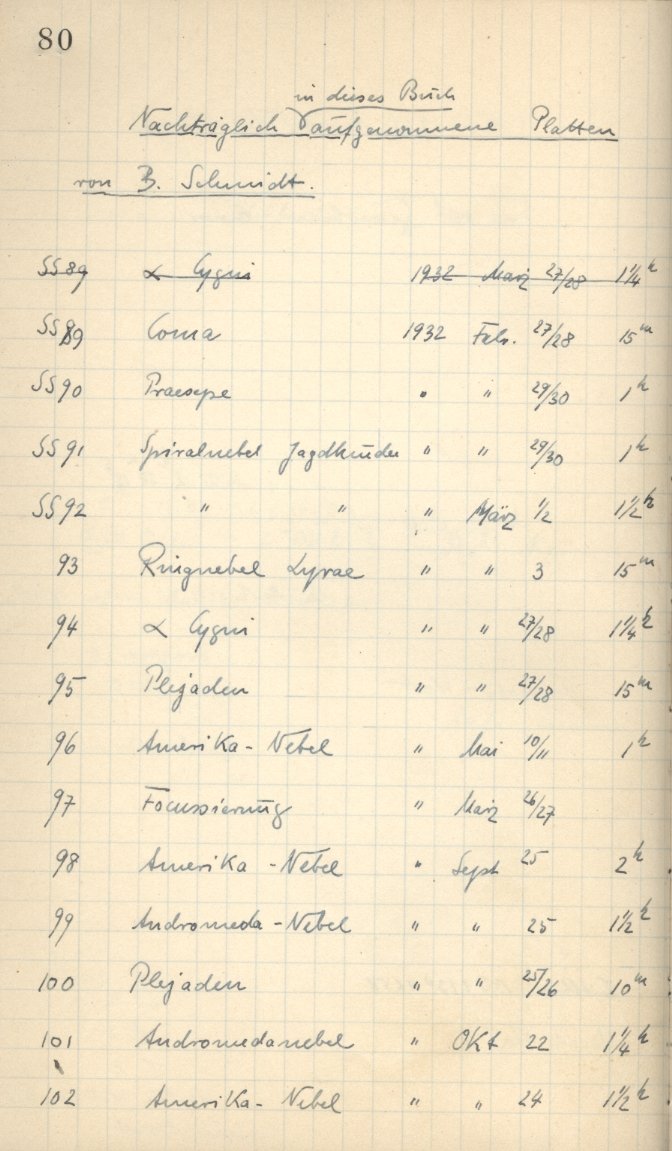 80
in dieses Buch
Nachträglich aufgenommene Platten
von B. Schmidt.
SS89 α Cygni 1932 März 27/28 1 1/4 h
SS89 Coma 1932 Feb. 27/28 15 m
SS90 Praesepe " " 29/30 1 h
SS91 Spiralnebel Jagdhunde " " 29/30 1 h
SS92 " " " März 1/2 1 1/2 h
93 Ringnebel Lyrae " " 3 15 m
94 α Cygni " " 27/28 1 1/4 h
95 Plejaden " " 27/28 15 m
96 Amerika-Nebel " Mai 10/11 1 h
97 Focussierung " März 26/27
98 Amerika-Nebel " Sept 25 2 h
99 Andromeda-Nebel " " 25 1 1/2 h
100 Plejaden " " 25/26 10 m
101 Andromedanebel " OKt 22 1 1/4 h
102 Amerika-Nebel " " 24 1 1/2 h